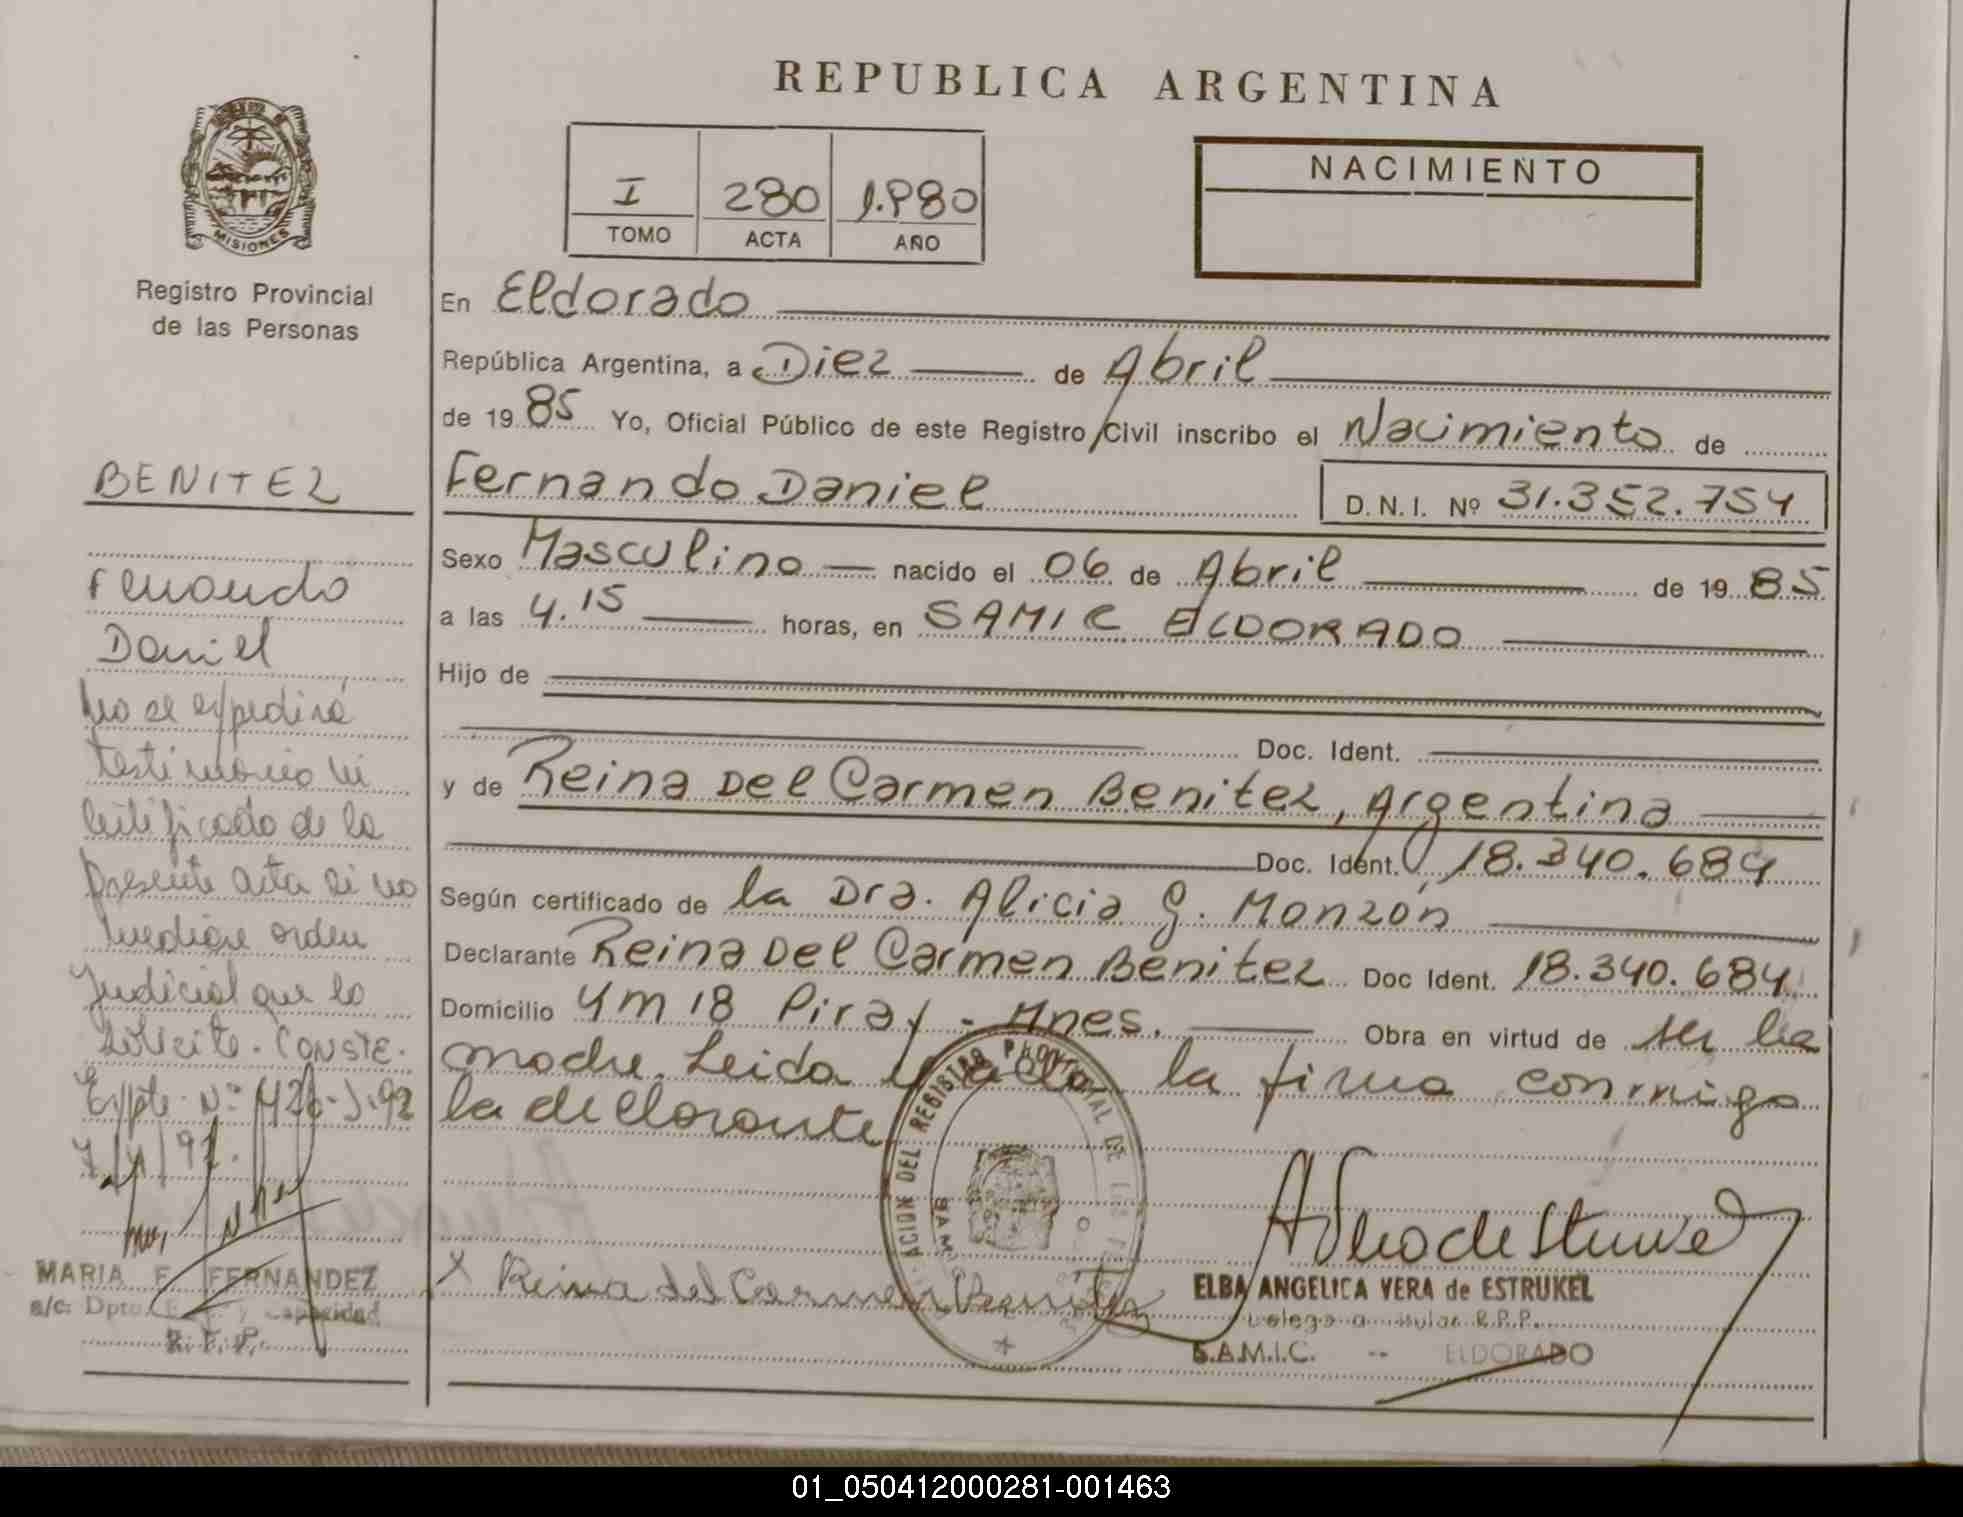 REPUBLICA ARGENTINA
MISIONES
Registro Provincial
de las Personas
I 280 1.980
TOMO ACTA AÑO
NACIMIENTO
En Eldorado
República Argentina, a Diez de Abril
de 19 85 Yo, Oficial Público de este Registro Civil inscribo el Nacimiento de
Fernando Daniel D.N.I. Nº 31.352.754
Sexo Masculino nacido el 06 de Abril de 19 85
a las 4.15 horas, en SAMIC ELDORADO
Hijo de
Doc. Ident.
y de Reina Del Carmen Benitez, Argentina
Doc. Ident. 18.340.684
Según certificado de la Dra. Alicia G. Monzón
Declarante Reina Del Carmen Benitez Doc Ident. 18.340.684
Domicilio Km 18 Piray - Mnes. Obra en virtud de ser la
madre. Leida la firma conmigo
la declarante
BENITEZ
Fernando
Daniel
No se expedirá
testimonio ni
certificado de la
presente acta si no
mediare orden
Judicial que lo
solicite. CONSTE.
Expte. Nº
MARIA F. FERNANDEZ
a/c. Dpto. y Capacidad
R. P. P.
REGISTRO PROVINCIAL DE
X Reina del Carmen Benitez
ELBA ANGELICA VERA de ESTRUKEL
Delegada Titular R.P.P.
S.A.M.I.C. -- ELDORADO
01_050412000281-001463